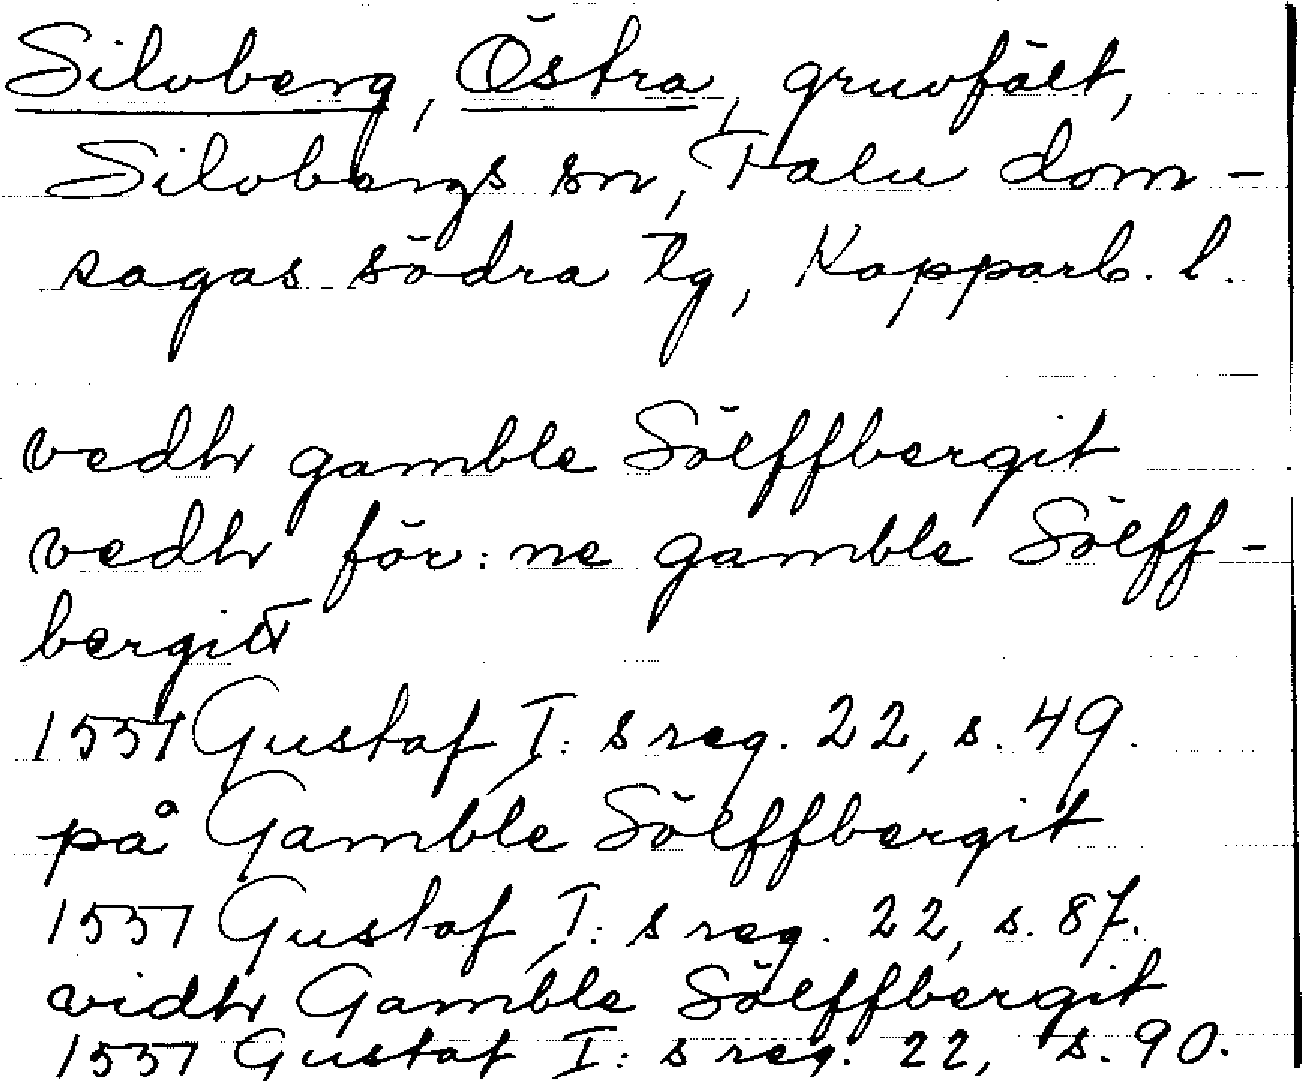 Silvberg, Östra, gruvfält,
Silvbergs sn, Falu dom-
sagas södra tg, Kopparb. l.
vedh gamble Sölffbergit
vedh för: ne gamble Sölff-
bergitt
1551 Gustaf I: s reg. 22, s. 49.
på Gamble Sölffbergit
1551 Gustaf I: s reg. 22, s. 87.
vidh Gamble Sölffbergit
1551 Gustaf I: s reg. 22, s. 90.